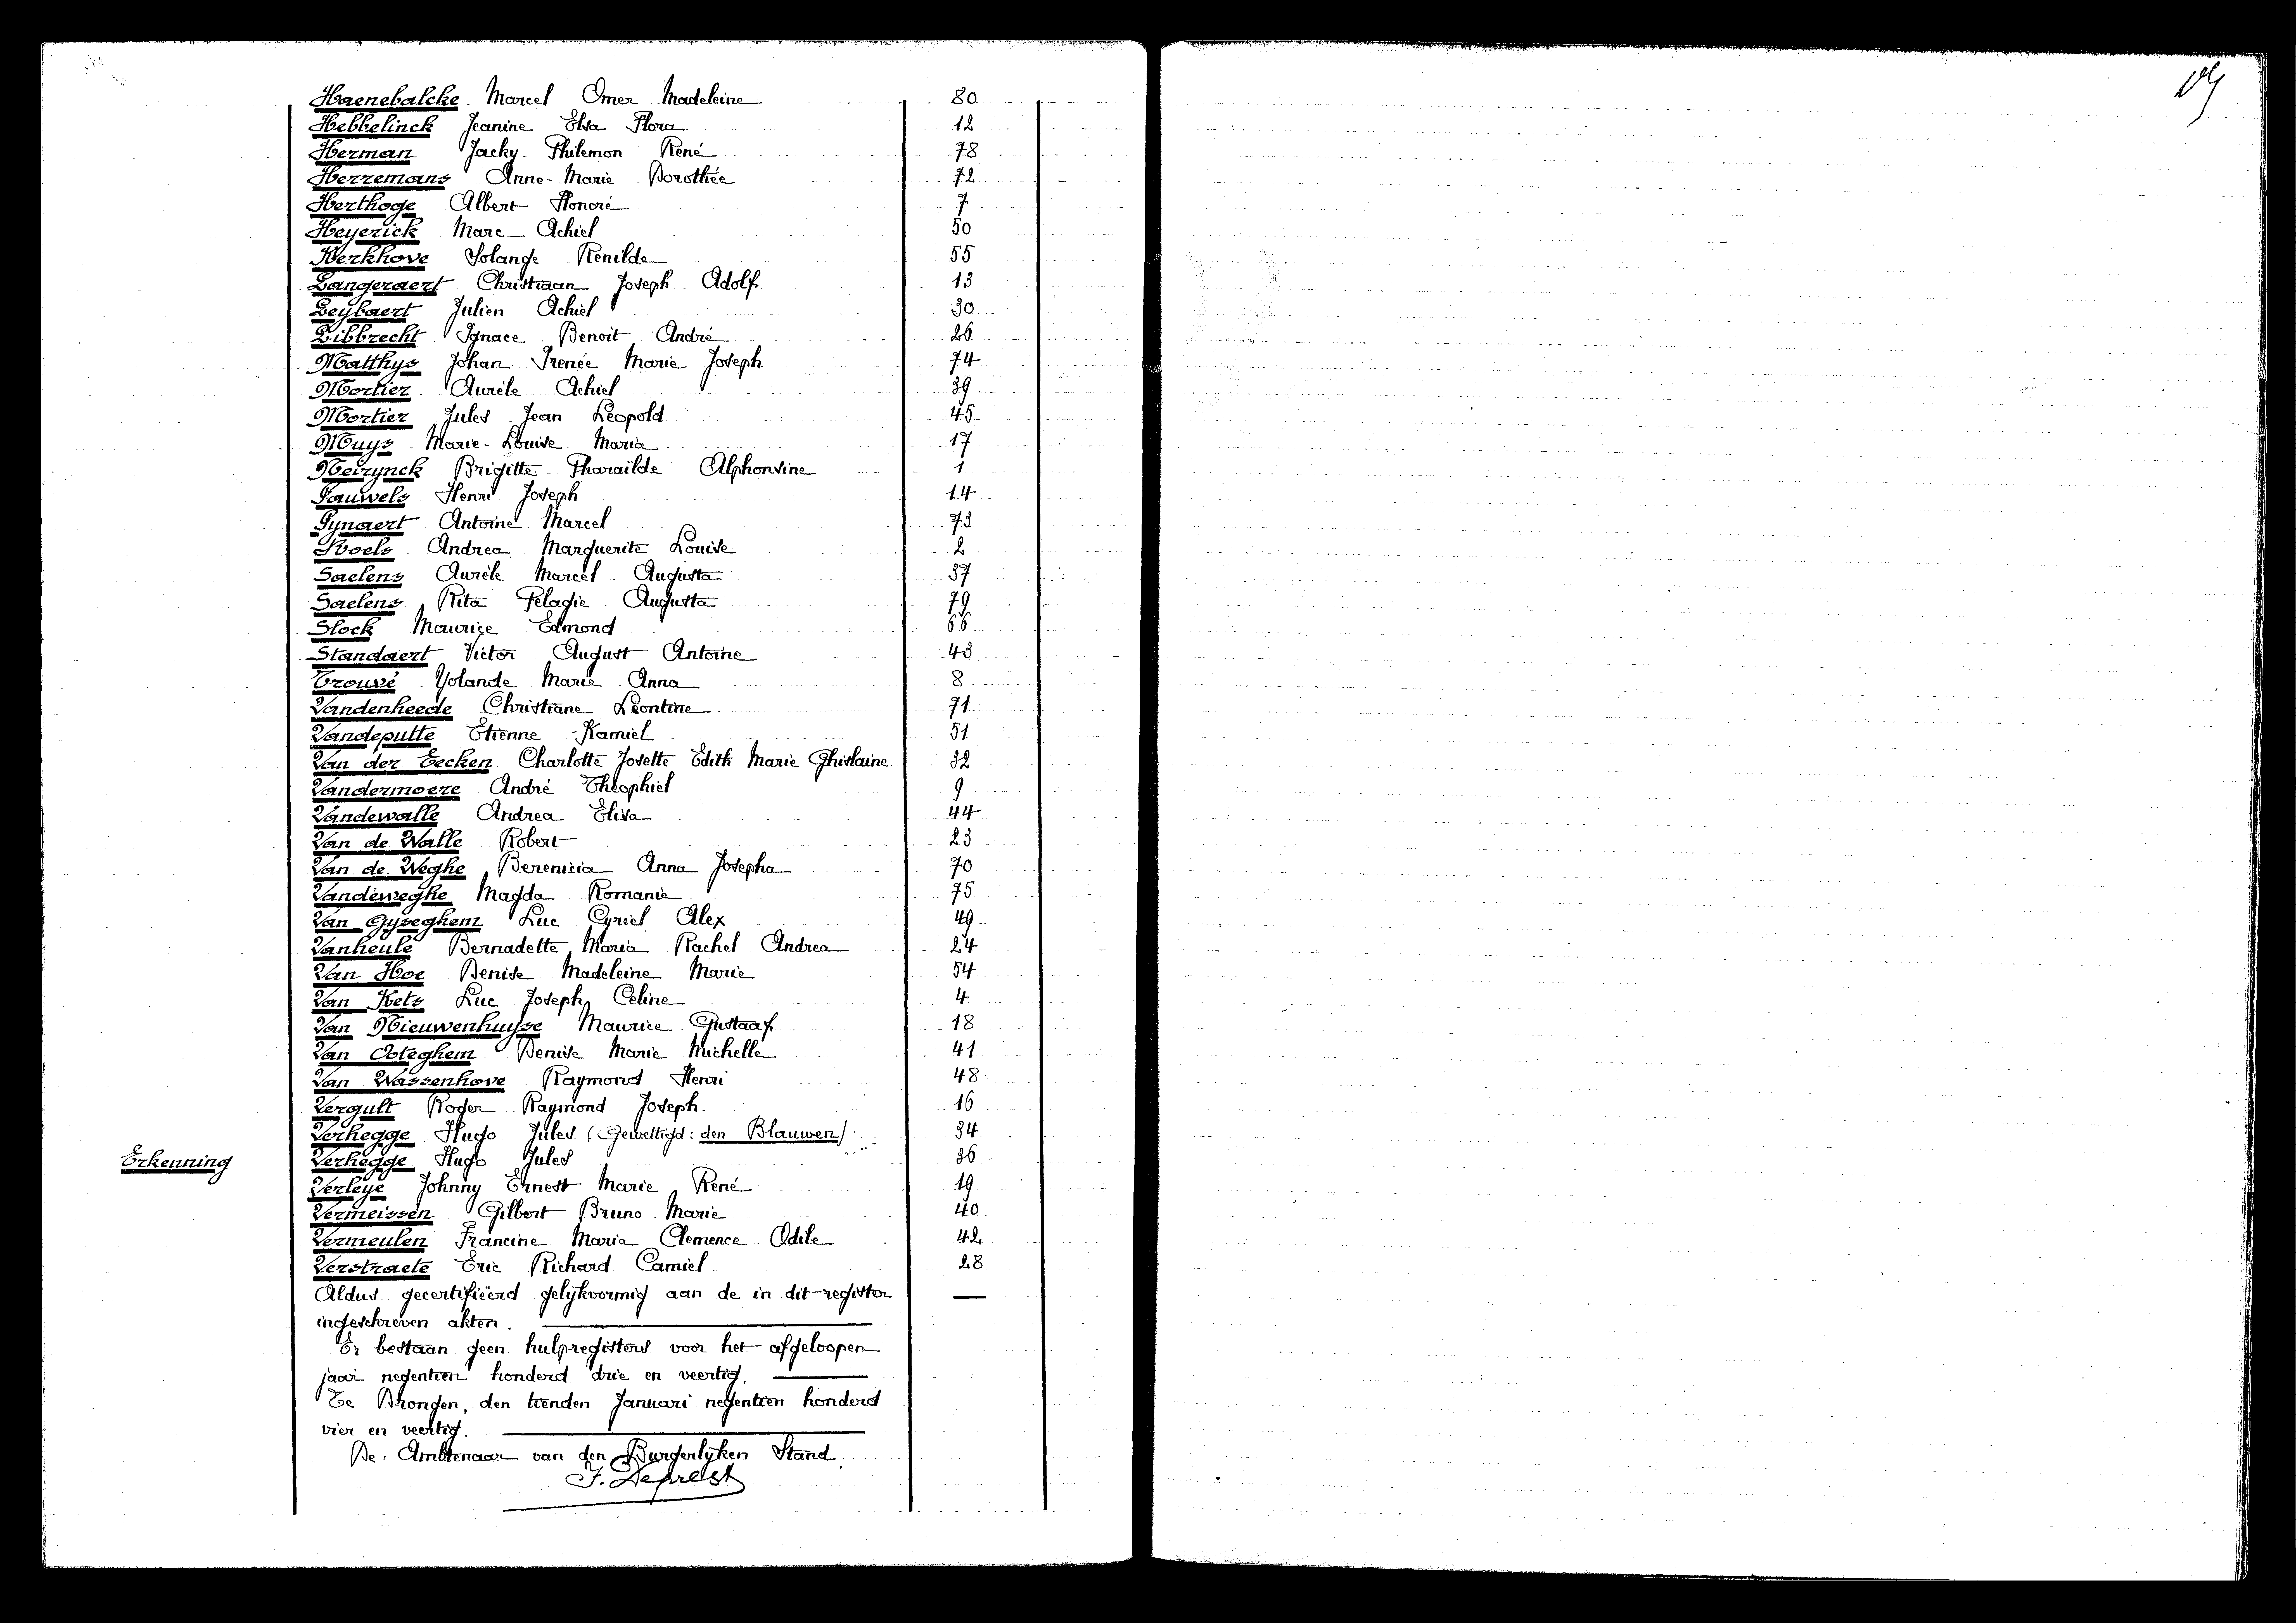 Haenebalcke Marcel Omer Madeleine 80
Hebbelinck Jeanine Elsa Flora 12
Herman Jacky Philemon René 78
Herremans Anne-Marie Dorothée 72
Herthoge Albert Honoré 7
Heyerick Marc Achiel 50
Kerkhove Solange Renilde 55
Langeraert Christiaan Joseph Adolf 13
Leybaert Julien Achiel 30
Libbrecht Ignace Benoit André 26
Matthys Johan Irenée Marie Joseph 74
Mortier Aurèle Achiel 39
Mortier Jules Jean Leopold 45
Muys Marie-Louise Maria 17
Neirynck Brigitte Pharaïlde Alphonsine 1
Pauwels Henri Joseph 14
Pynaert Antoine Marcel 73
Roels Andrea Marguerite Louise 2
Saelens Aurèle Marcel Augusta 37
Saelens Rita Pelagie Augusta 79
Slock Maurice Edmond 66
Standaert Victor August Antoine 43
Trouvé Yolande Marie Anna 8
Vandenheede Christiane Leontine 71
Vandeputte Etienne Kamiel 51
Van der Eecken Charlotte Josette Edith Marie Ghislaine 32
Vandermoere André Théophiel 9
Vandewalle Andrea Elisa 44
Van de Walle Robert 23
Van de Weghe Berenicia Anna Josepha 70
Vandeweghe Magda Romanie 75
Van Gyseghem Luc Cyriel Alex 49
Vanheule Bernadette Maria Rachel Andrea 24
Van Hoe Denise Madeleine Marie 54
Van Kets Luc Joseph Celine 4
Van Nieuwenhuyse Maurice Gustaaf 18
Van Ooteghem Denise Marie Michelle 41
Van Wassenhove Raymond Henri 48
Vergult Roger Raymond Joseph 16
Verhegge Hugo Jules (Gewettigd: den Blauwen) 34
Erkenning Verhegge Hugo Jules 36
Verleye Johnny Ernest Marie René 19
Vermeissen Gilbert Bruno Marie 40
Vermeulen Francine Maria Clemence Odile 42
Verstraete Eric Richard Camiel 28
Aldus gecertifieerd gelykvormig aan de in dit register
ingeschreven akten.
Er bestaan geen hulpregisters voor het afgeloopen
jaar negentien honderd drie en veertig.
Te Drongen, den tienden Januari negentien honderd
vier en veertig.
De Ambtenaar van den Burgerlyken Stand.